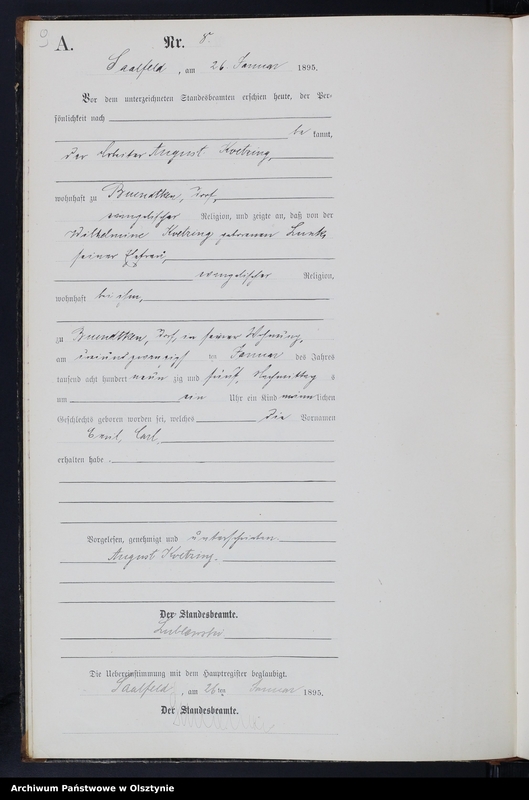 9
A.
Nr. 8.
Saalfeld, am 26 Januar 1895.
Vor dem unterzeichneten Standesbeamten erschien heute, der Per-
sönlichkeit nach
be kannt,
der Arbeiter August
wohnhaft zu Buendtken, Dorf,
evangelischer Religion, und zeigte an, daß von der
Wilhelmine geborenen
seiner Ehefrau,
evangelischer Religion,
wohnhaft bei ihm,
zu Buendtken, Dorf, in seiner Wohnung,
am Januar des Jahres
tausend acht hundert neun zig und fünf, Nachmittag s
um ein Uhr ein Kind männlichen
Geschlechts geboren worden sei, welches die Vornamen
Carl
erhalten habe.
Vorgelesen, genehmigt und unterschrieben
August
Der Standesbeamte.
Die Uebereinstimmung mit dem Hauptregister beglaubigt.
Saalfeld, am 26ten Januar 1895.
Der Standesbeamte.
Archiwum Państwowe w Olsztynie